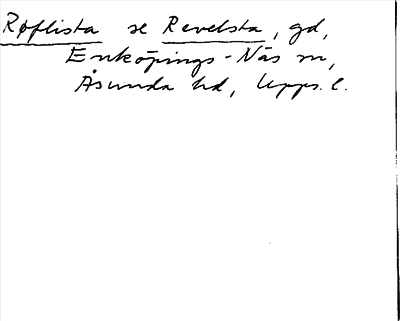 Røflista se Revelsta, gd,
Enköpings-Näs sn,
Åsunda hd, Upps. l.